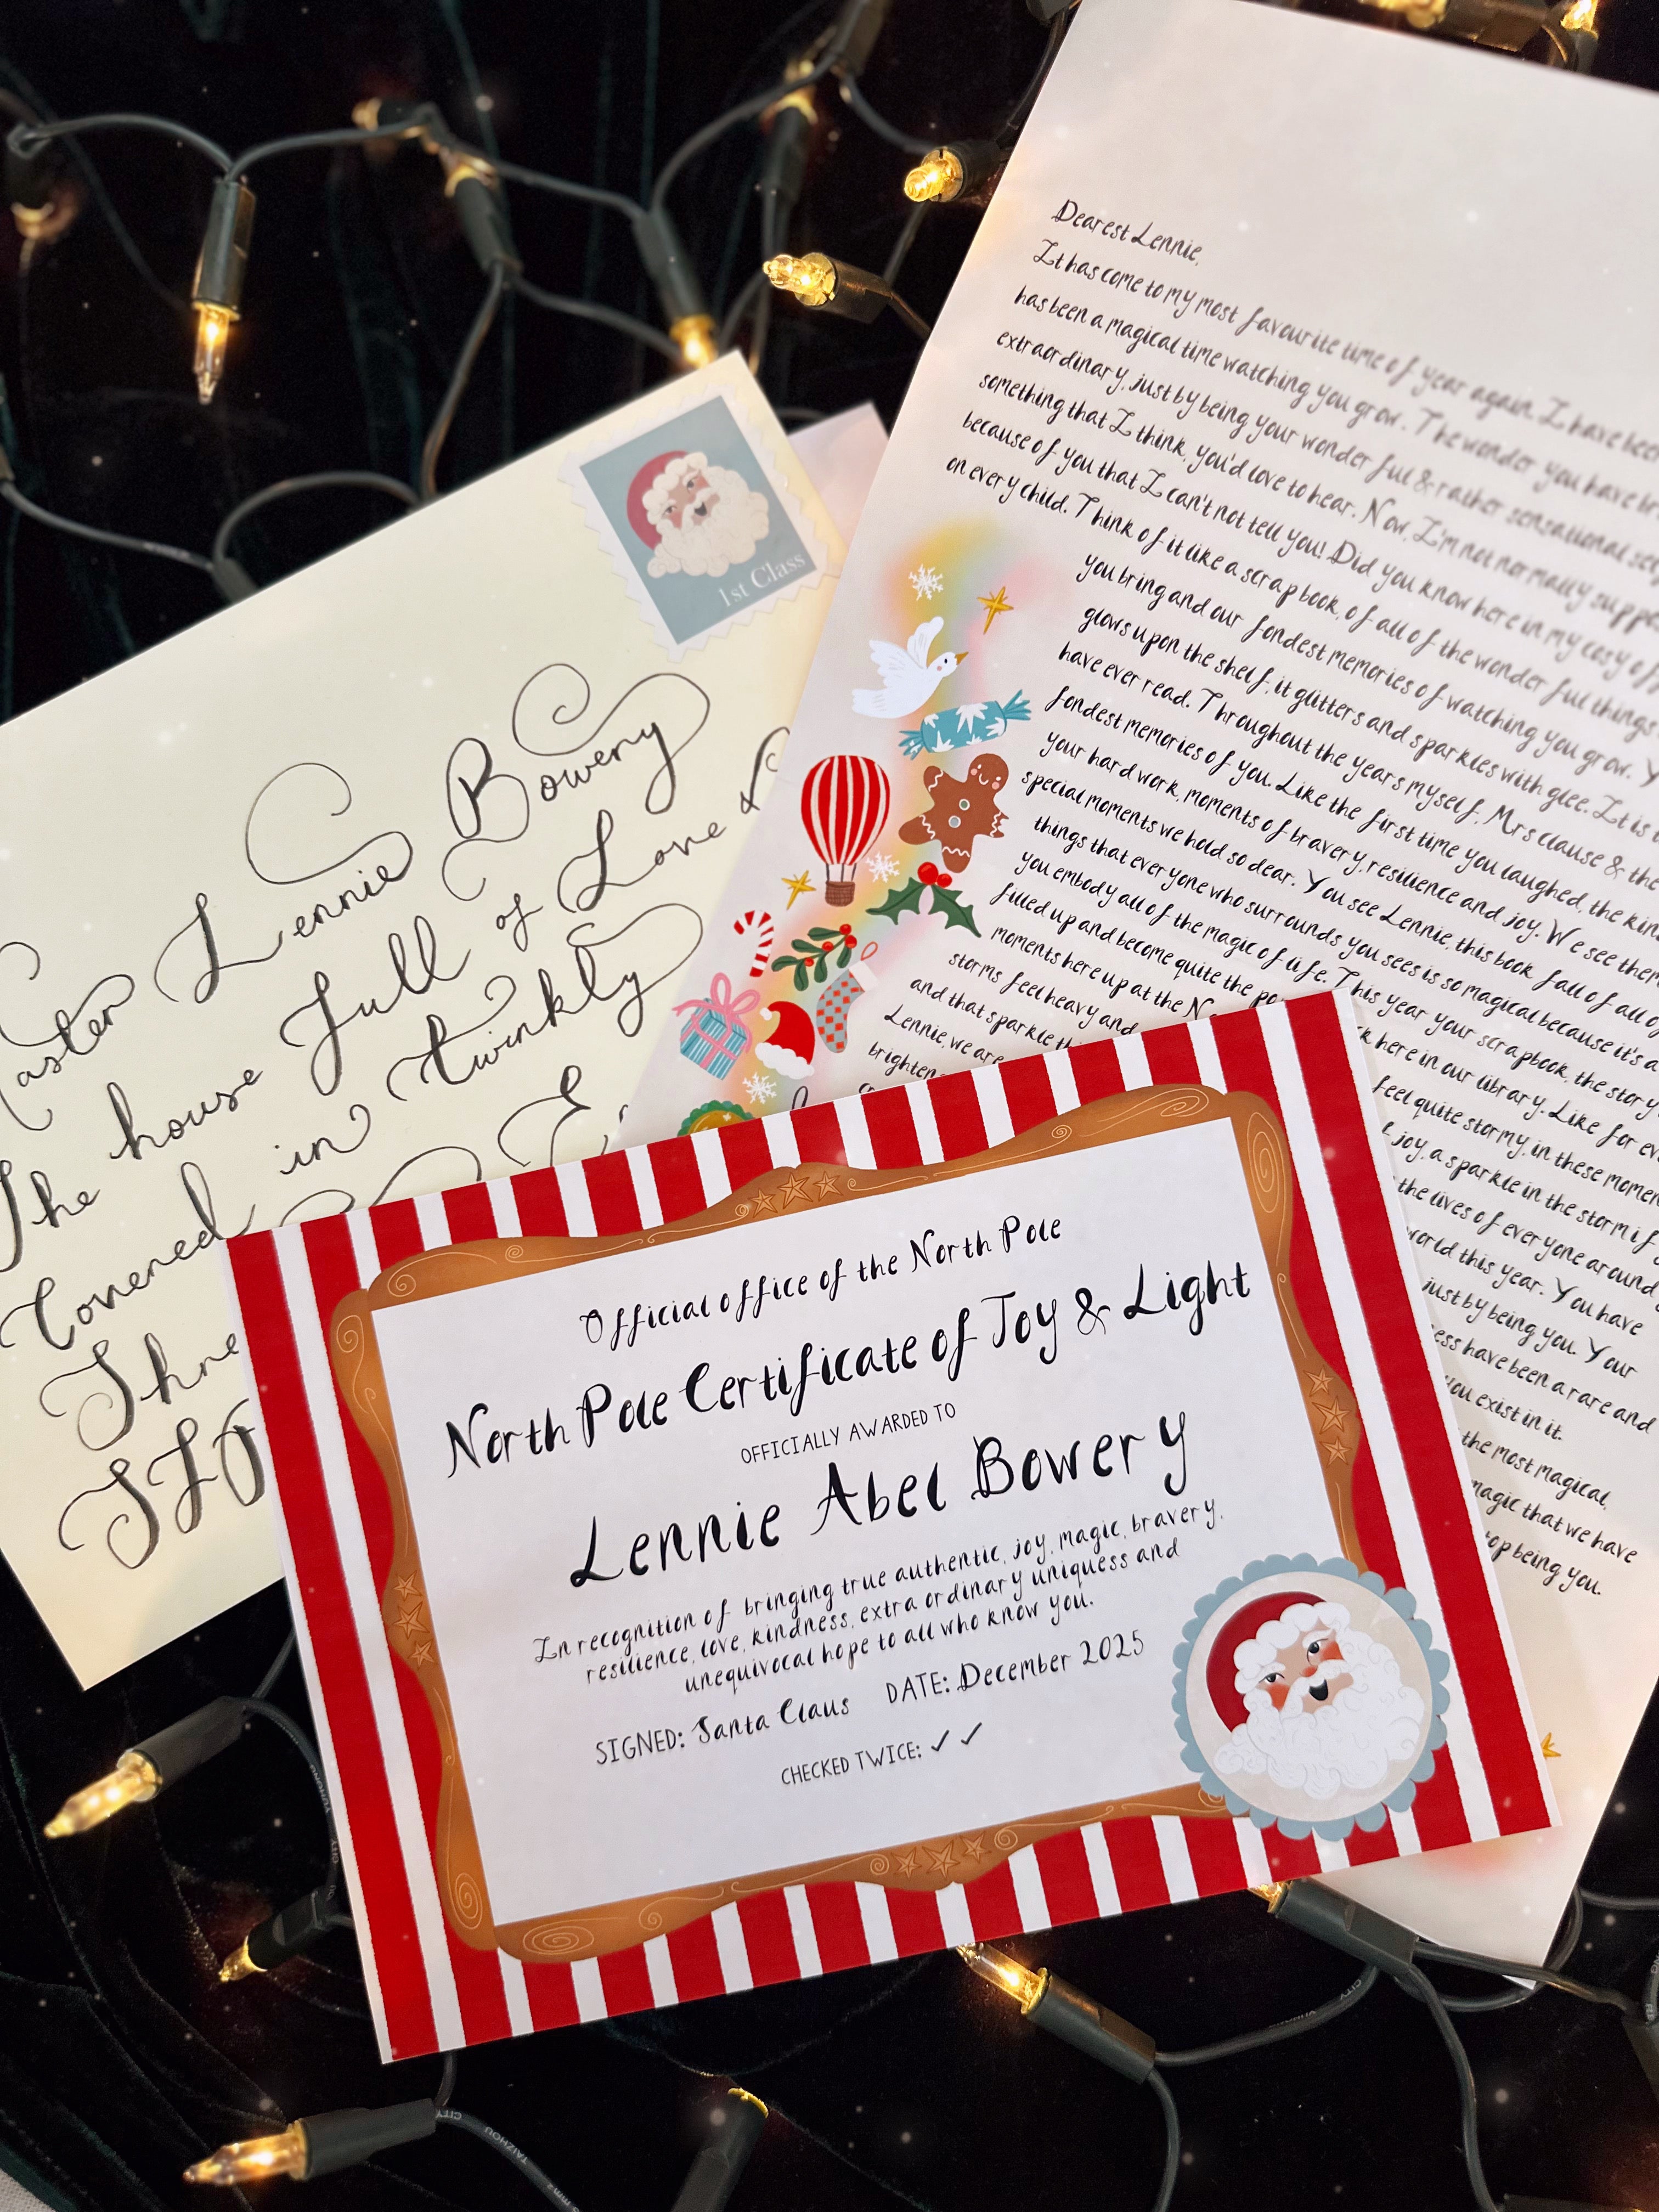 1st Class
Master Lennie Bowery
The house full of Love &
Covered in twinkly
Dearest Lennie,
It has come to my most favourite time of year again. I have been
has been a magical time watching you grow. The wonder you have
extraordinary, just by being your wonder ful & rather sensational self
something that I think, you'd love to hear. Now, I'm not normally
because of you that I can't not tell you! Did you know here in my cosy
on every child. Think of it like a scrapbook, of all of the wonder ful things
you bring and our fondest memories of watching you grow.
glows upon the shelf, it glitters and sparkles with glee. It is
have ever read. Throughout the years myself, Mrs Clause & the
fondest memories of you. Like the first time you laughed, the
your hard work, moments of bravery, resilience and joy. We see them
special moments we hold so dear. You see Lennie, this book full of all of
things that everyone who surrounds you sees is so magical because it's a
you embody all of the magic of life. This year your scrapbook, the story
filled up and become quite the here in our library. Like for
moments here up at the feel quite stormy, in these
storms feel heavy and joy, a sparkle in the storm if
and that sparkle the lives of everyone around
Lennie, we are world this year. You have
brighten just by being you. Your
have been a rare and
you exist in it.
the most magical,
magic that we have
being you.
Official office of the North Pole
North Pole Certificate of Joy & Light
OFFICIALLY AWARDED TO
Lennie Abel Bowery
In recognition of bringing true authentic, joy, magic, bravery,
resilience, love, kindness, extra ordinary uniquess and
unequivocal hope to all who know you.
SIGNED: Santa Claus DATE: December 2025
CHECKED TWICE: ✓ ✓
TAIZHOU CITY